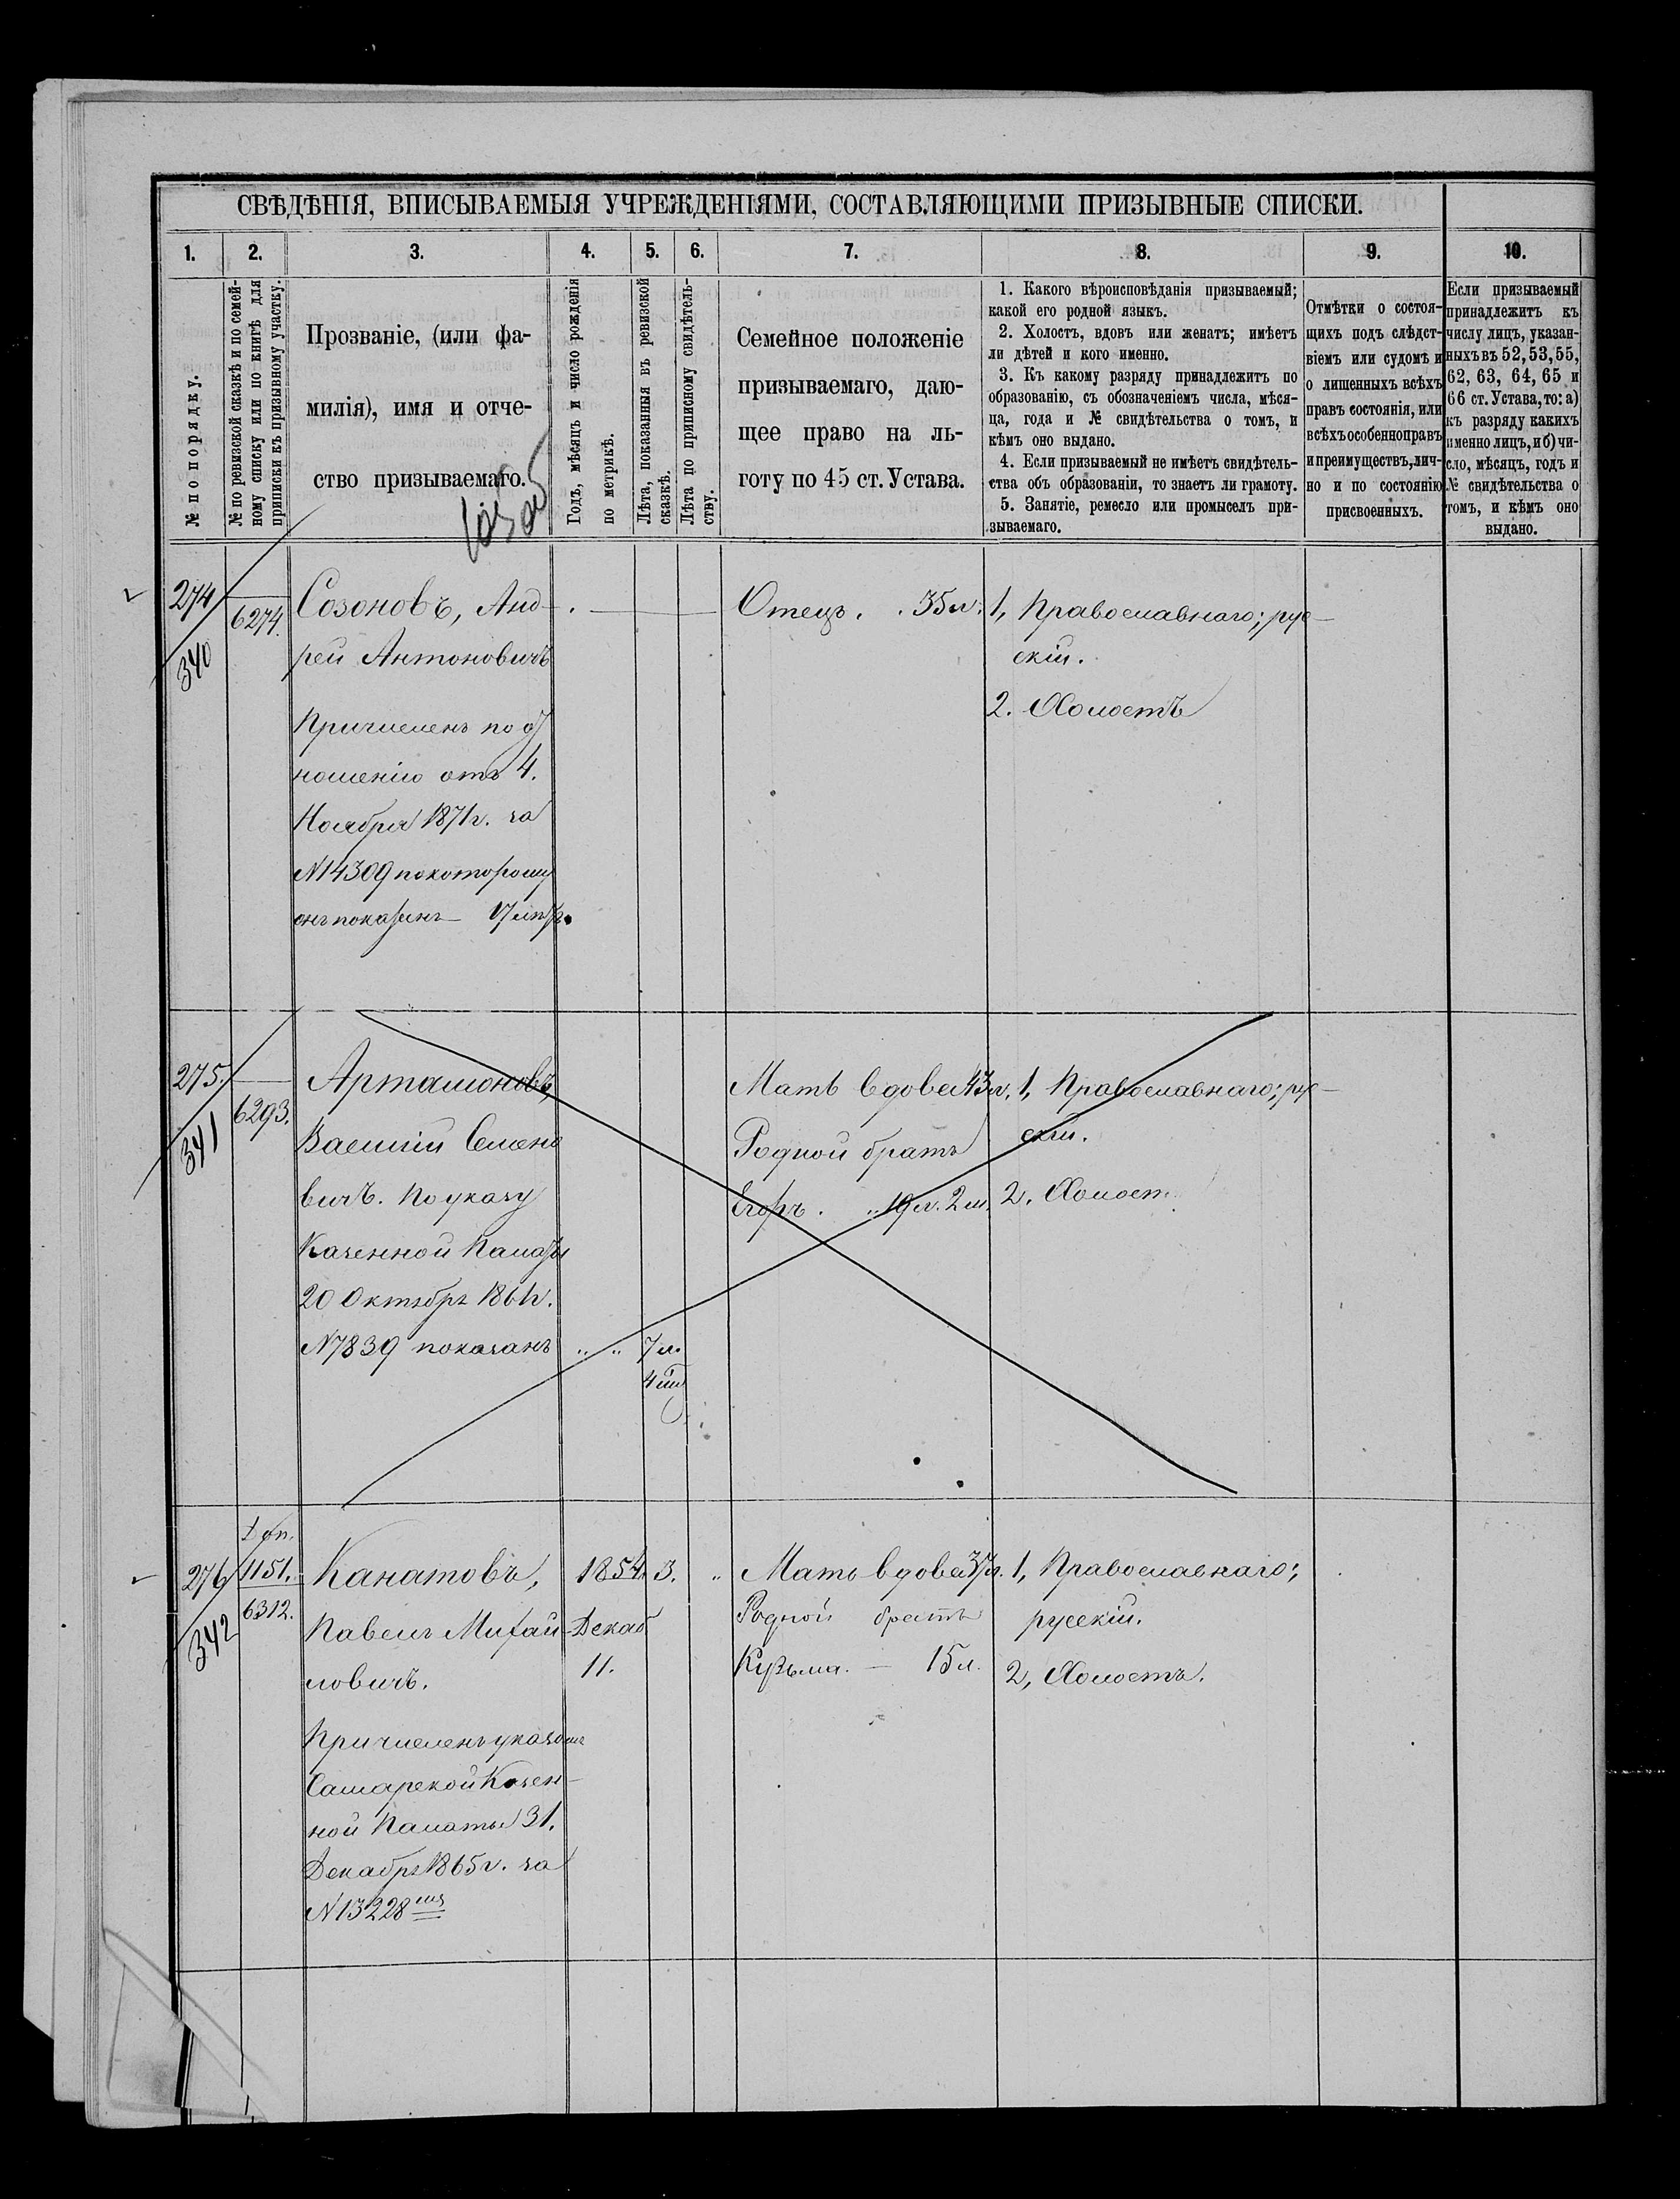 СВѢДѢНІЯ, ВПИСЫВАЕМЫЯ УЧРЕЖДЕНІЯМИ, СОСТАВЛЯЮЩИМИ ПРИЗЫВНЫЕ СПИСКИ.
1. 2. 3. 4. 5. 6. 7. 8. 9. 10.
№ по порядку.
№ по ревизской сказкѣ и по семей-
ному списку или по книгѣ для
приписки къ призывному участку.
Прозваніе, (или фа-
милія), имя и отче-
ство призываемаго.
Годъ, мѣсяцъ и число рожденія
по метрикѣ.
Лѣта, показанныя въ ревизской
сказкѣ.
Лѣта по приписному свидѣтель-
ству.
Семейное положеніе
призываемаго, даю-
щее право на ль-
готу по 45 ст. Устава.
1. Какого вѣроисповѣданія призываемый;
какой его родной языкъ.
2. Холостъ, вдовъ или женатъ; имѣетъ
ли дѣтей и кого именно.
3. Къ какому разряду принадлежитъ по
образованію, съ обозначеніемъ числа, мѣся-
ца, года и № свидѣтельства о томъ, и
кѣмъ оно выдано.
4. Если призываемый не имѣетъ свидѣтель-
ства объ образованіи, то знаетъ ли грамоту.
5. Занятіе, ремесло или промыселъ при-
зываемаго.
Отмѣтки о состоя-
щихъ подъ слѣдст-
віемъ или судомъ и
о лишенныхъ всѣхъ
правъ состоянія, или
всѣхъ особенно правъ
и преимуществъ, лич-
но и по состоянію
присвоенныхъ.
Если призываемый
принадлежитъ къ
числу лицъ, указан-
ныхъ въ 52, 53, 55,
62, 63, 64, 65 и
66 ст. Устава, то: а)
къ разряду какихъ
именно лицъ, и б) чи-
сло, мѣсяцъ, годъ и
№ свидѣтельства о
томъ, и кѣмъ оно
выдано.
274
340
6274.
Созоновъ, Анд-
рей Антоновичъ
Причисленъ по от
ношенію отъ 4.
Ноября 1871 г. за
N 14309 по которому
онъ показанъ — 17 лѣтъ.
Отецъ. . 35 л.
1, Православнаго; рус-
скій.
2. Холостъ
275.
341
6293.
Артамоновъ,
Василій Семено
вичъ. По указу
Казенной Палаты
20 Октября 1861 г.
N 7839 показанъ
7 л.
4 м.
Мать вдова 43 л.
Родной братъ
Егоръ. 19 л. 2 м.
1, Православнаго; рус-
скій.
2. Холост.
276
342
Доп.
1151.
6312.
Канатовъ,
Павелъ Михай-
ловичъ.
Причисленъ указомъ
Самарской Казен-
ной Палаты 31.
Декабря 1865 г. за
N 13228 мъ
1854.
Декаб
11.
3.
Мать вдова 37 л.
Родной братъ
Кузьма. — 15 л.
1, Православнаго;
русскій.
2, Холостъ.